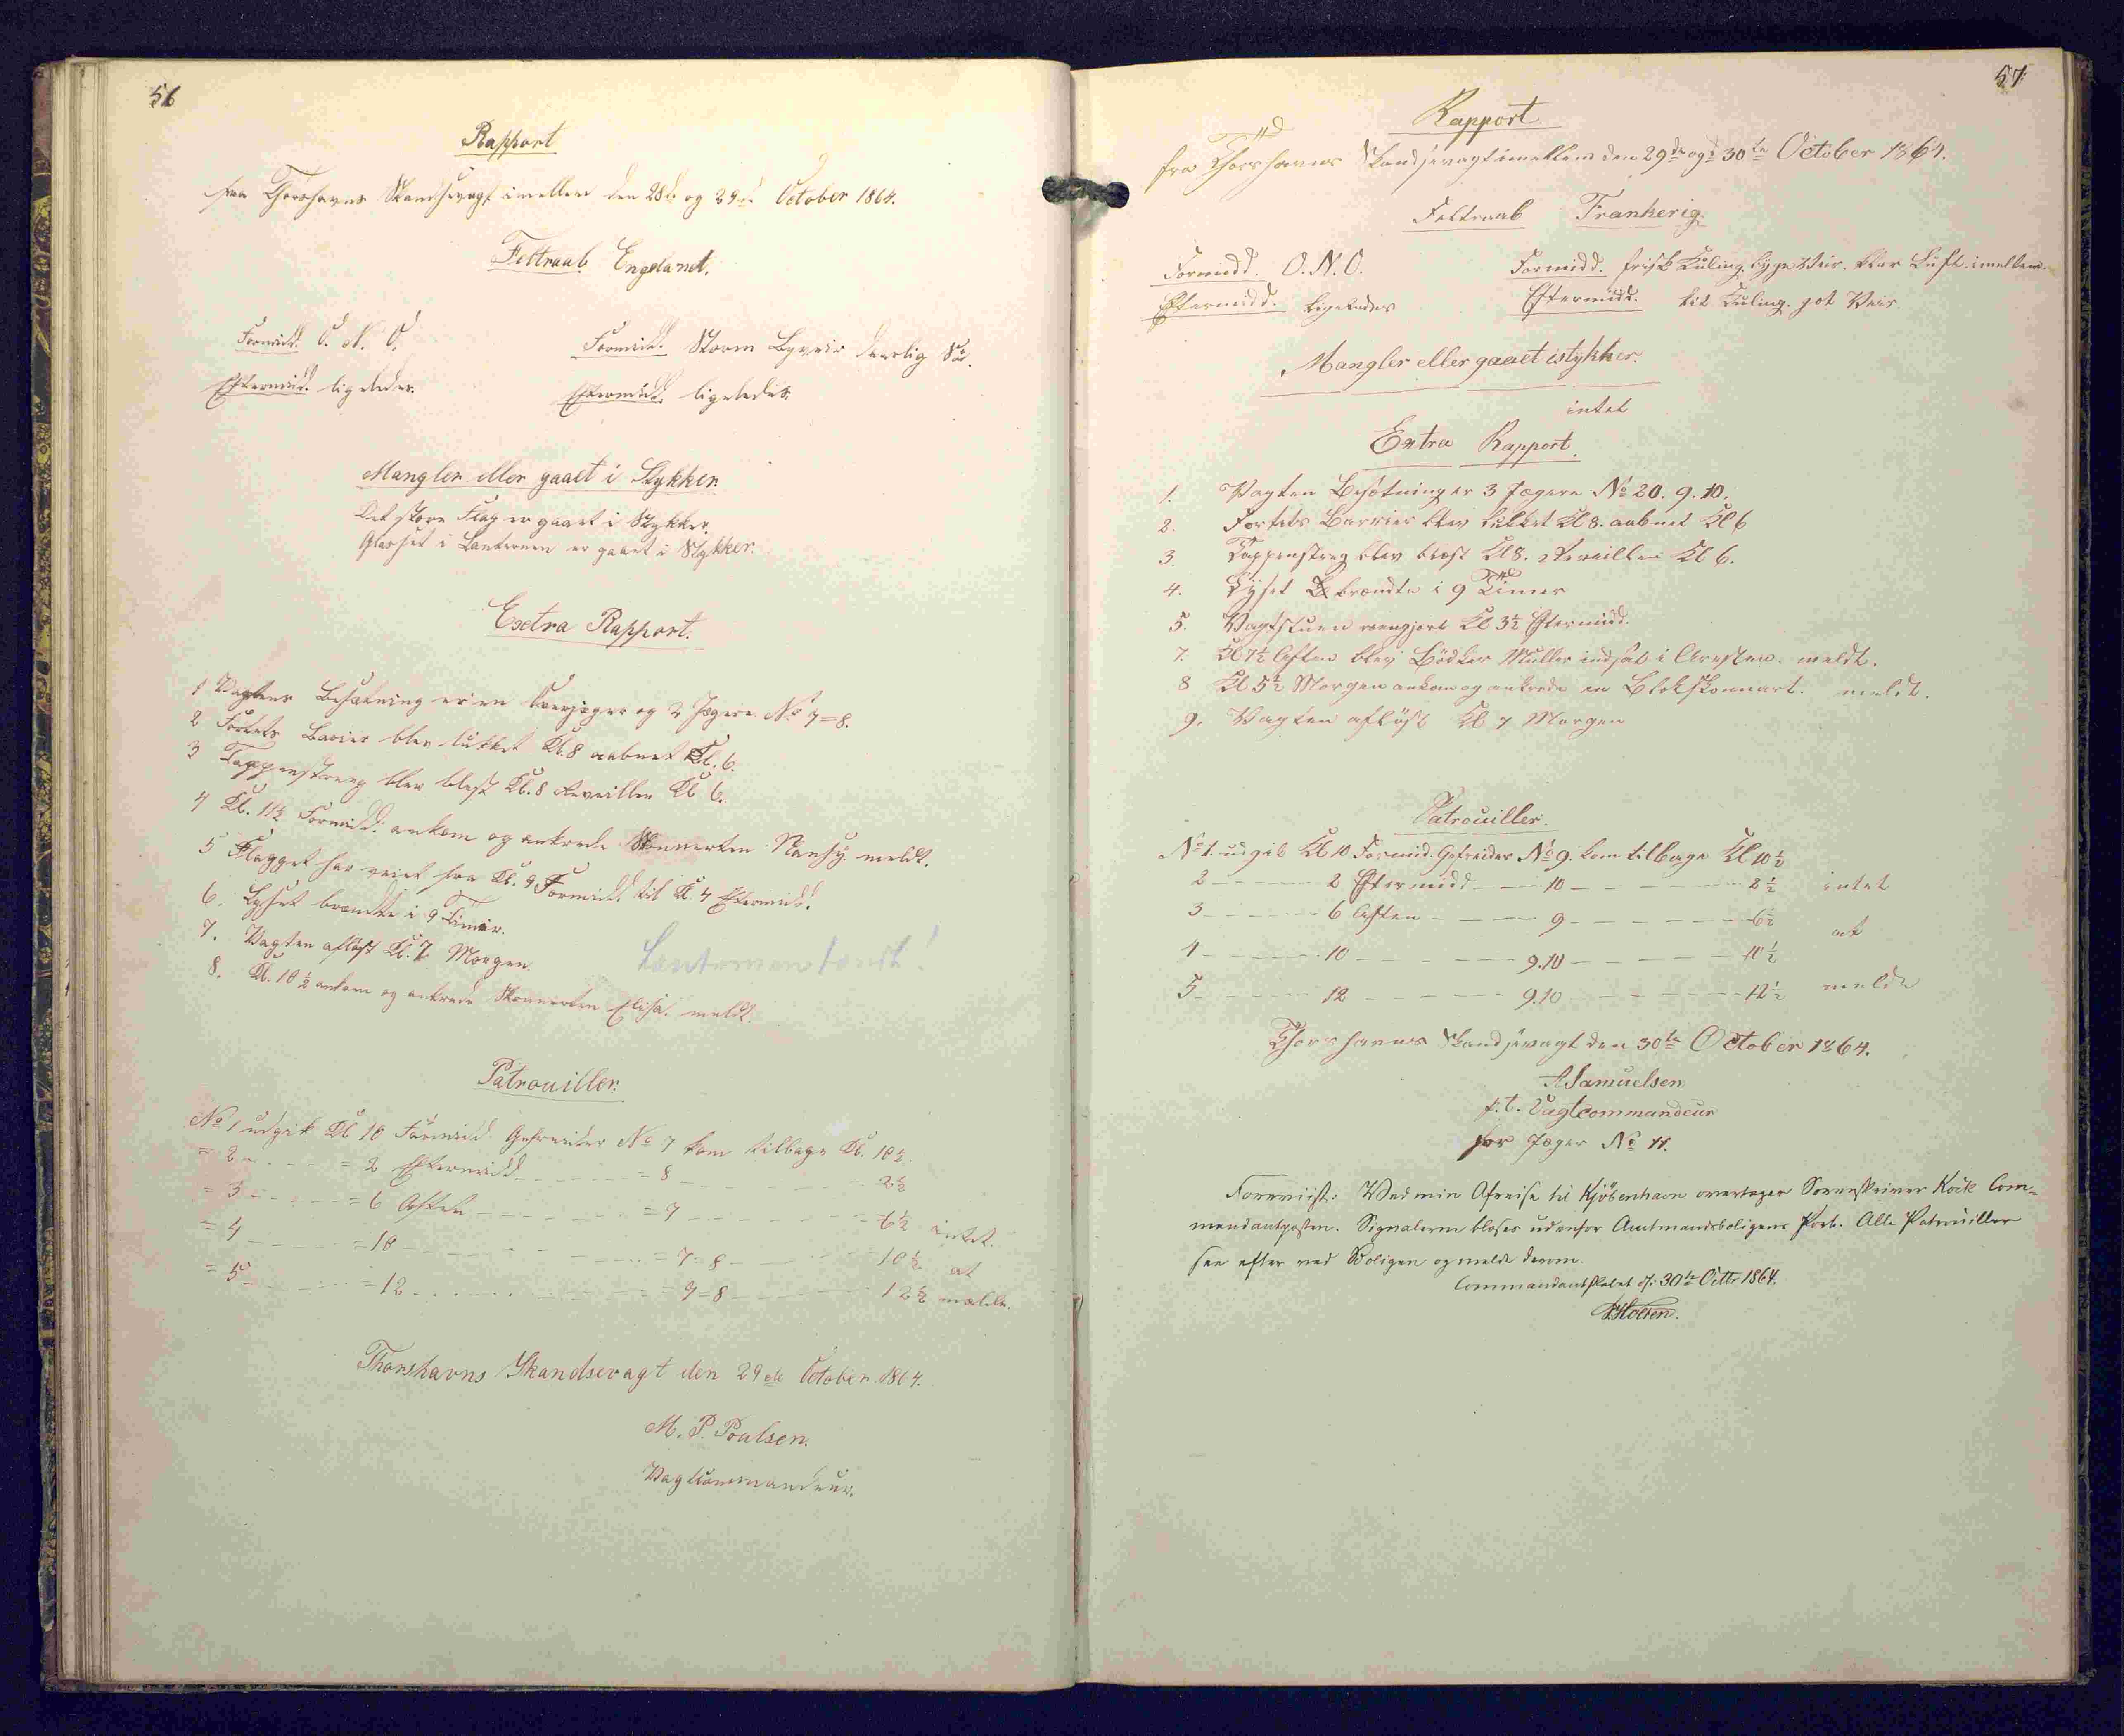 56
Rapport
fra Thorshavns Skandsevagt imellem den 28de og 29de October 1864.
Feltraab Engeland.
Formidd. O. N. O. Formidd. Storm Byveir daarlig Sö.
Eftermidd. ligeledes. Eftermidd. ligeledes.
Mangler eller gaaet i Stykker.
Det store Flag er gaaet i Stykker.
Glasset i Lanternen er gaaet i Stykker.
Exstra Rapport.
1 Vagtens Besætning er en Overjæger og 2 Jægere No 7=8.
2 Fortets Barier blev lukket Kl. 8 aabnet Kl. 6.
3 Tappenstreeg blev blæst Kl. 8 Reveillen Kl 6.
4 Kl. 11½ Formidd. ankom og ankrede Skonnerten Nansy. meldt.
5 Flagget har veiet fra Kl. 9 Formidd. til Kl. 4 Eftermidd.
6. Lyset brændte i 9 Timer.
7. Vagten aflöst Kl. 7 Morgen.
8. Kl. 10½ ankom og ankrede Skonnerten Elisa. meldt.
Patrouiller.
No 1 udgik Kl 10 Formidd. Gefreider No 7 kom tilbage Kl. 10½.
= 2 = 2 Eftermidd = 8 2½
= 3 = 6 Aften = 7 = 6½ intet.
= 4 = 10 = 7=8 10½ at
= 5 = 12 = 7=8 12½ melde.
Thorshavns Skandsevagt den 29de October 1864.
M. P. Poulsen.
Vagtkommandeur.
57
Rapport.
fra Thorshavns Skandsevagt imellem den 29de og 30te October 1864.
Feltraab Frankerig.
Formidd. O. N. O. Formidd. frisk Kuling. byge Veir. klar Luft imellem.
Eftermidd. ligeledes Eftermidd. lit Kuling. got Veir.
Mangler eller gaaet istykker.
intet
Extra Rapport.
1. Vagten Besætning er 3 Jægere No 20. 9. 10.
2. Fortets Barrier blev lukket Kl 8. aabnet Kl 6
3. Tappenstreg blev blæst Kl 8. Reveillen Kl 6.
4. Lyset brændte i 9 Timer
5. Vagtstuen reengjort Kl 3½ Eftermidd.
7. Kl 7½ Aften blev Bödker Müller indsat i Aresten. meldt.
8 Kl 5½ Morgen ankom og ankrede en Blokskonnart. meldt.
9. Vagten aflöst Kl 7 Morgen
Patrouiller.
No 1. udgik Kl 10 Formid. Gefreider No 9. kom tilbage Kl 10½
2 2 Eftermidd 10 2½ intet
3 6 Aften 9 6½ at
4 10 9.10 10½
5 12 9.10 12½ melde
Thorshavns Skandsevagt den 30te October 1864.
Samuelsen
f.t. Vagtcommandeur
for Jæger No 11.
Foreviist. Ved min Afreise til Kjöbenhavn overtager Sorenskriver Kock Com-
mendantposten. Signalerne blæses udenfor Amtmandsboligens Port. Alle Patrouiller
see efter ved Boligen og melde derom.
Commandantskabet d: 30te Octbr 1864.